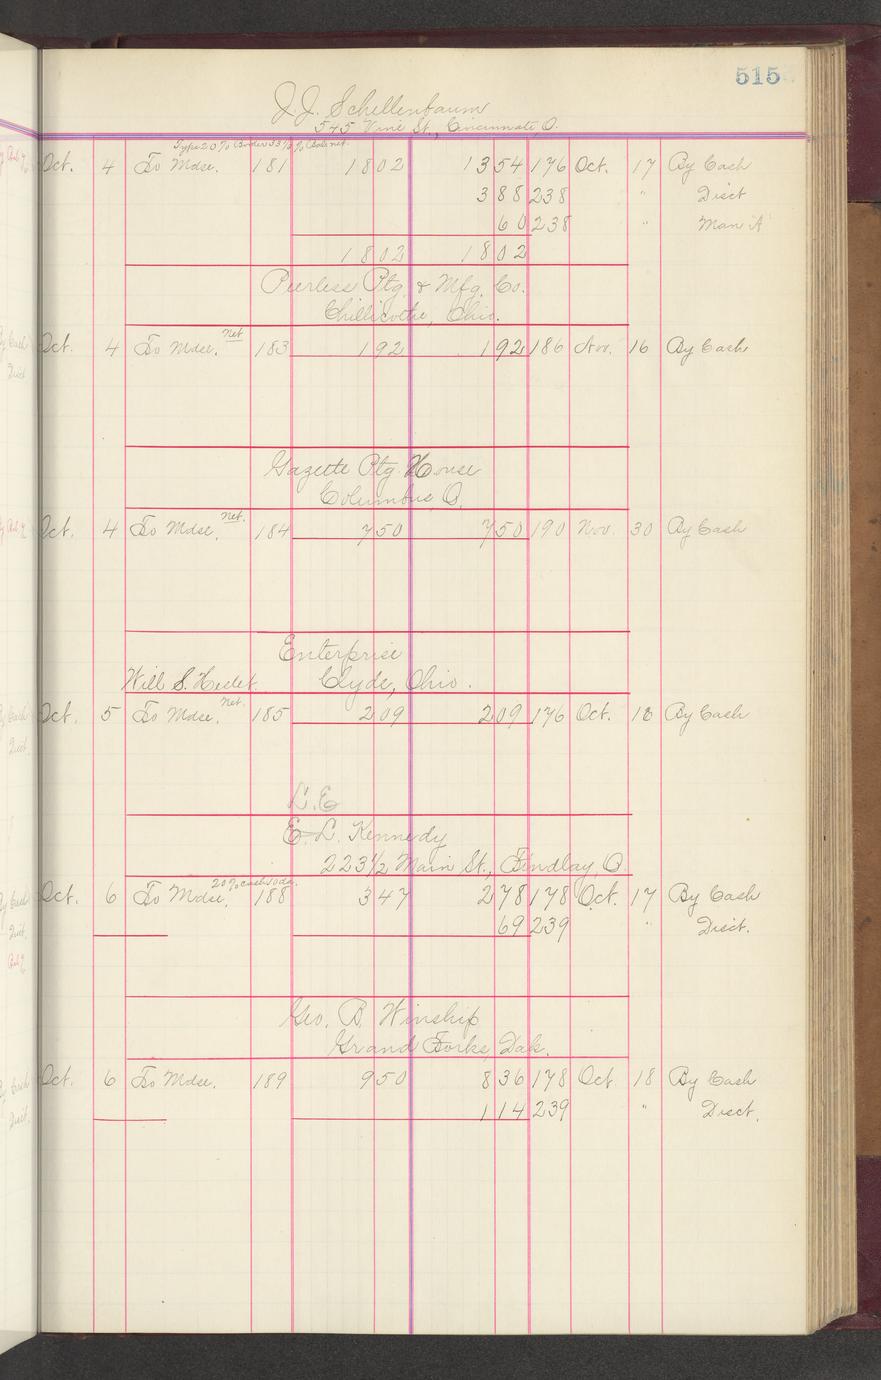 515
J. J. Schellenbaum
545 Vine St., Cincinnati, O.
Type 20% Border 33⅓% Bal. net.
Oct. 4 To Mdse. 181 1802 1354 176 Oct. 17 By Cash
388 238 " Disct
60 238 " Man "A"
1802 1802
Peerless Ptg. & Mfg. Co.
Chillicothe, Ohio.
Oct. 4 To Mdse. net 183 192 192 186 Nov. 16 By Cash
Gazette Ptg. House
Columbus, O.
Oct. 4 To Mdse. net. 184 750 750 190 Nov. 30 By Cash
Enterprise
Will S. Clyde, Ohio.
Oct. 5 To Mdse. net. 185 209 209 176 Oct. 18 By Cash
L. E
E. L. Kennedy
223½ Main St., Findlay, O
Oct. 6 To Mdse. 20% cash 10 da. 188 347 278 178 Oct. 17 By Cash
69 239 " Disct.
Geo. B. Winship
Grand Forks, Dak.
Oct. 6 To Mdse. 189 950 836 178 Oct. 18 By Cash
114 239 " Disct.